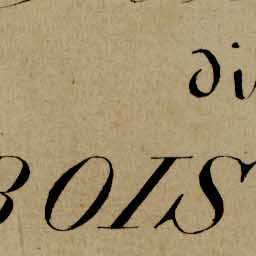 di
BOIS